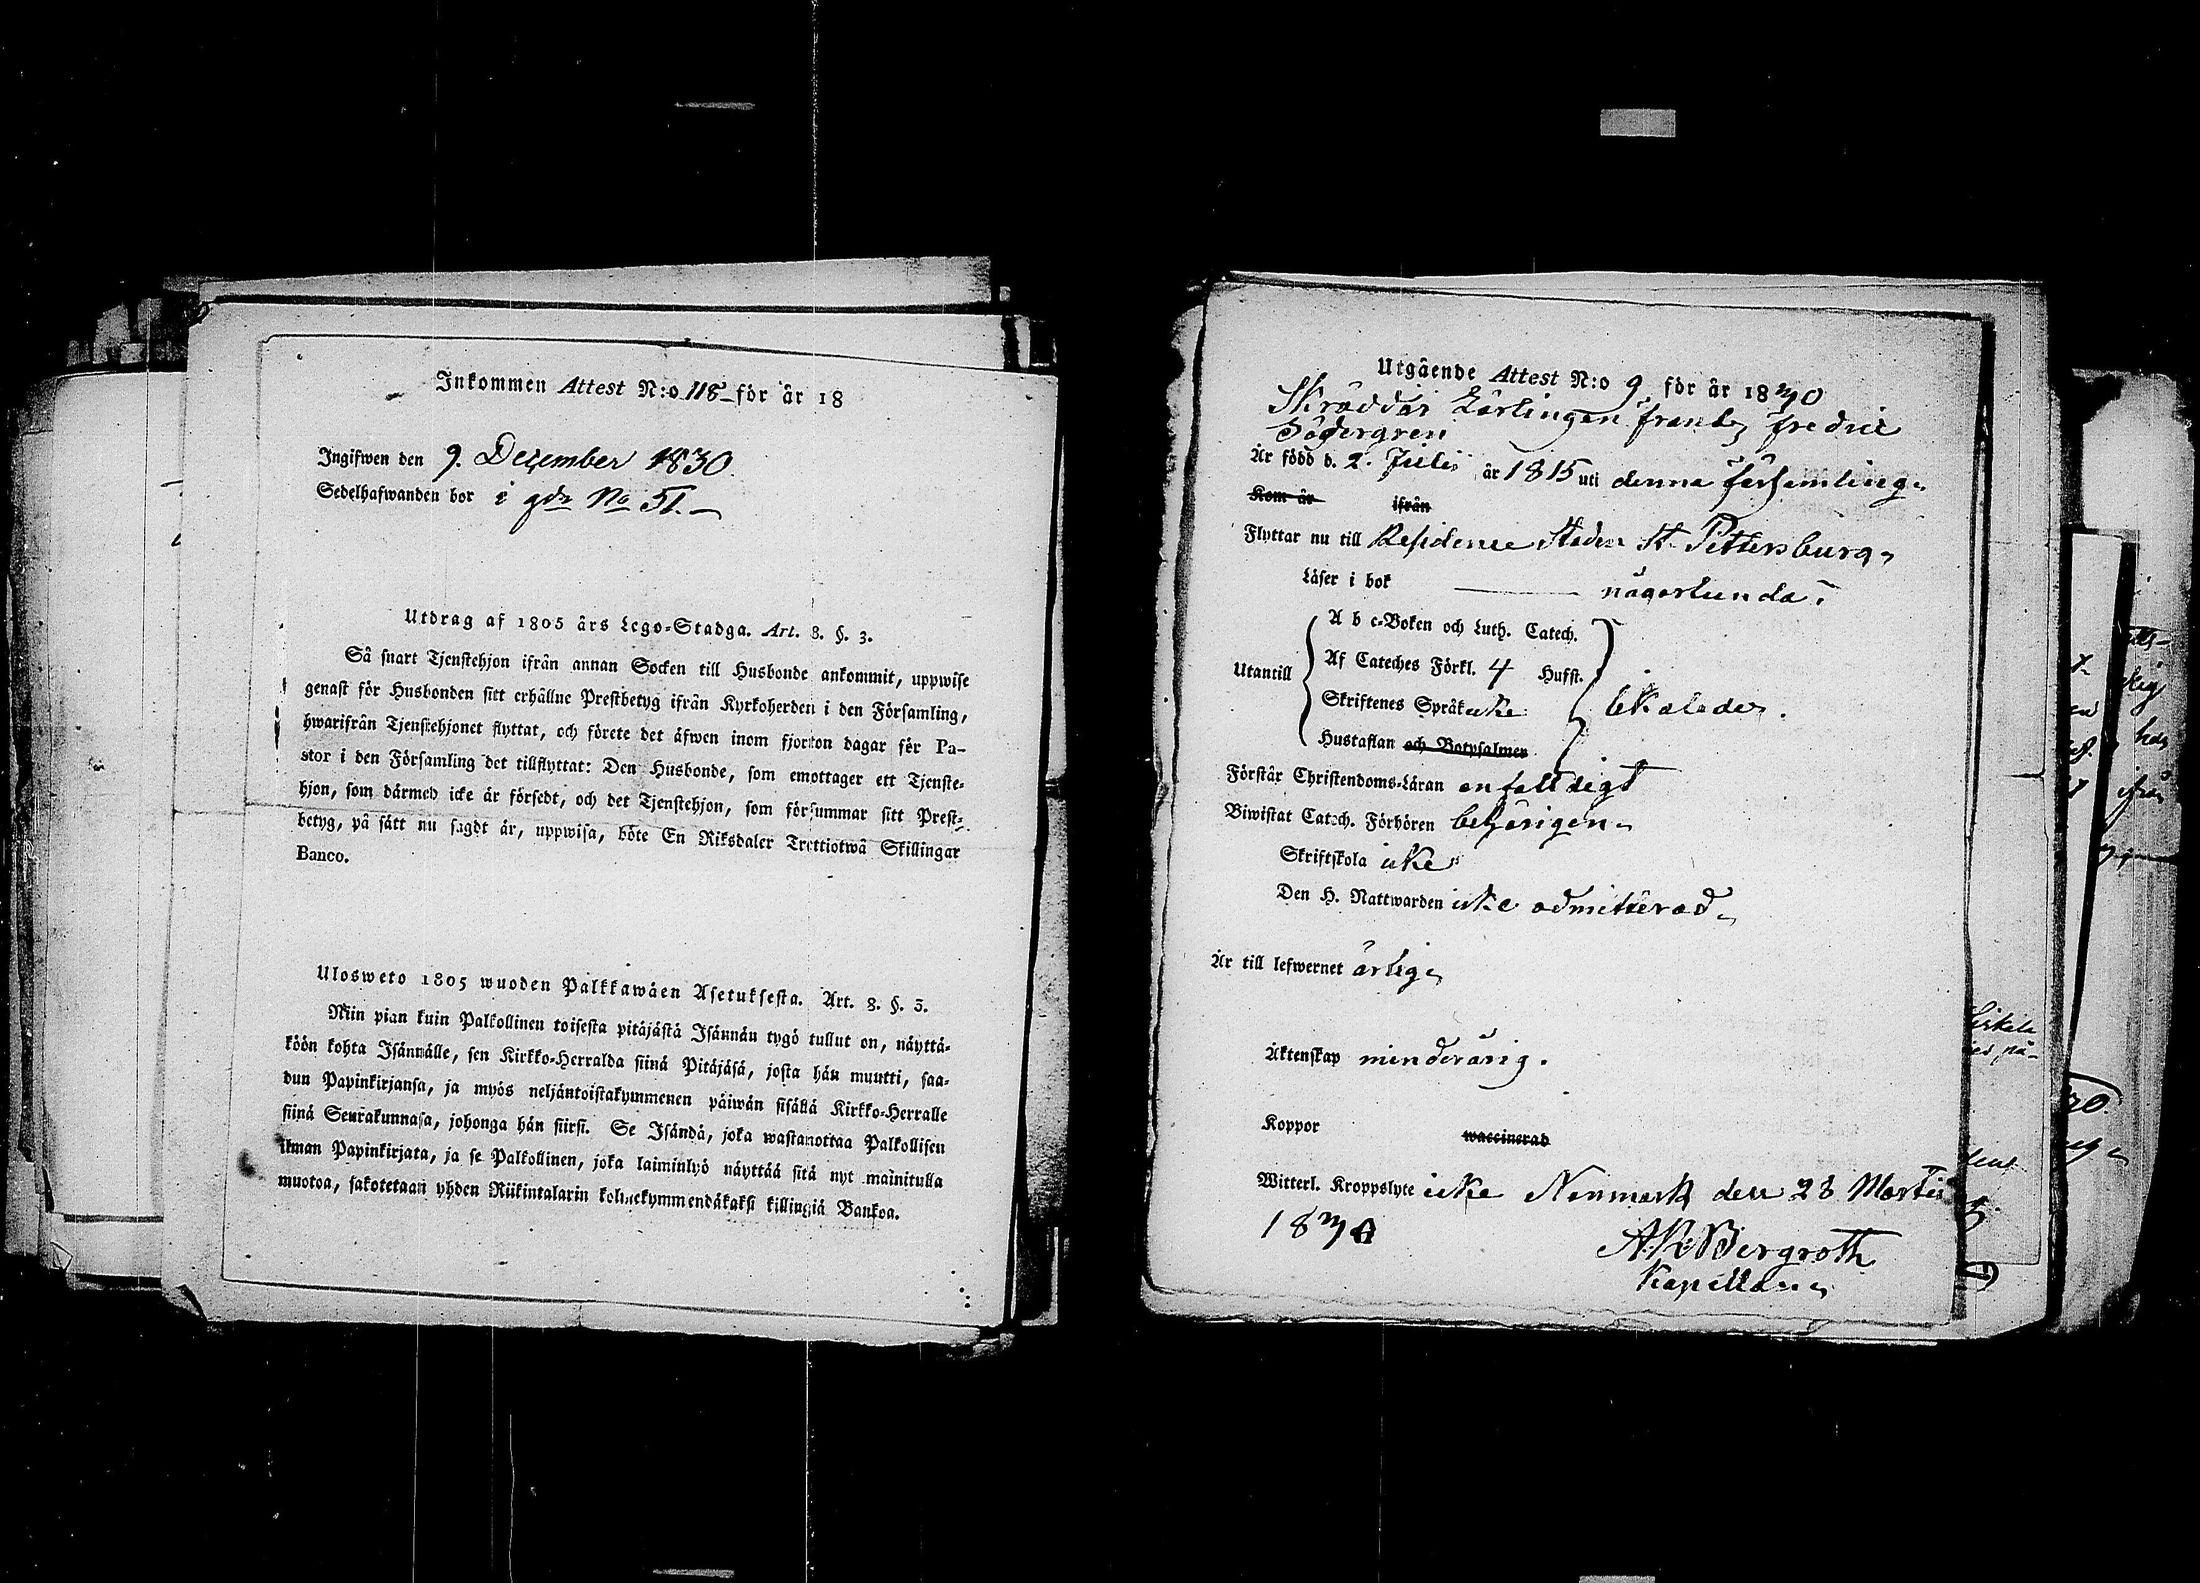 Inkommen Attest N:o 118 för år 18
Ingifwen den 9. December 1830.
Sedelhafwanden bor i gdn No 51.
Utdrag af 1805 års Lego-Stadga. Art. 8. §. 3.
Så snart Tjenstehjon ifrån annan Socken till Husbonde ankommit, uppwise
genast för Husbonden sitt erhållne Prestbetyg ifrån Kyrkoherden i den Församling,
hwarifrån Tjenstehjonet flyttat, och förete det äfwen inom fjorton dagar för Pa-
stor i den Församling det tillflyttat: Den Husbonde, som emottager ett Tjenste-
hjon, som därmed icke är försedt, och det Tjenstehjon, som försummar sitt Prest-
betyg, på sätt nu sagdt är, uppwisa, böte En Riksdaler Trettiotwå Skillingar
Banco.
Ulosweto 1805 wuoden Palkkawäen Asetuksesta. Art. 8. §. 3.
Niin pian kuin Palkollinen toisesta pitäjästä Isännän tygö tullut on, näyttä-
köön kohta Isännälle, sen Kirkko-Herralda siinä Pitäjäsä, josta hän muutti, saa-
dun Papinkirjansa, ja myös neljäntoistakymmenen päiwän sisällä Kirkko-Herralle
siinä Seurakunnasa, johonga hän siirsi. Se Isändä, joka wastanottaa Palkollisen
ilman Papinkirjata, ja se Palkollinen, joka laiminlyö näyttää sitä nyt mainitulla
muotoa, sakotetaan yhden Riikintalarin kolmekymmendäkaksi killingiä Bankoa.
Utgående Attest N:o 9 för år 1830
Skräddar Lärlingen Frantz Fredric
Södergren
Är född d. 2. Julii år 1815 uti denna församling.
Kom år ifrån
Flyttar nu till Residence Staden St. Pettersburg.
Läser i bok någorlunda.
A b c-Boken och Luth. Catech.
Utantill Af Cateches Förkl. 4 Hufst.
Skriftenes Språk icke
Hustaflan och Botpsalmen
Förstår Christendoms-Läran enfaldigt
Biwistat Catech. Förhören behörigen.
Skriftskola icke
Den H. Nattwarden icke admitterad.
Är till lefwernet ärlig.
Äktenskap minderårig.
Koppor waccinerad
Witterl. Kroppslyte icke Nenmark den 28 Martii
1830
A.R. Bergroth
Kapellan.